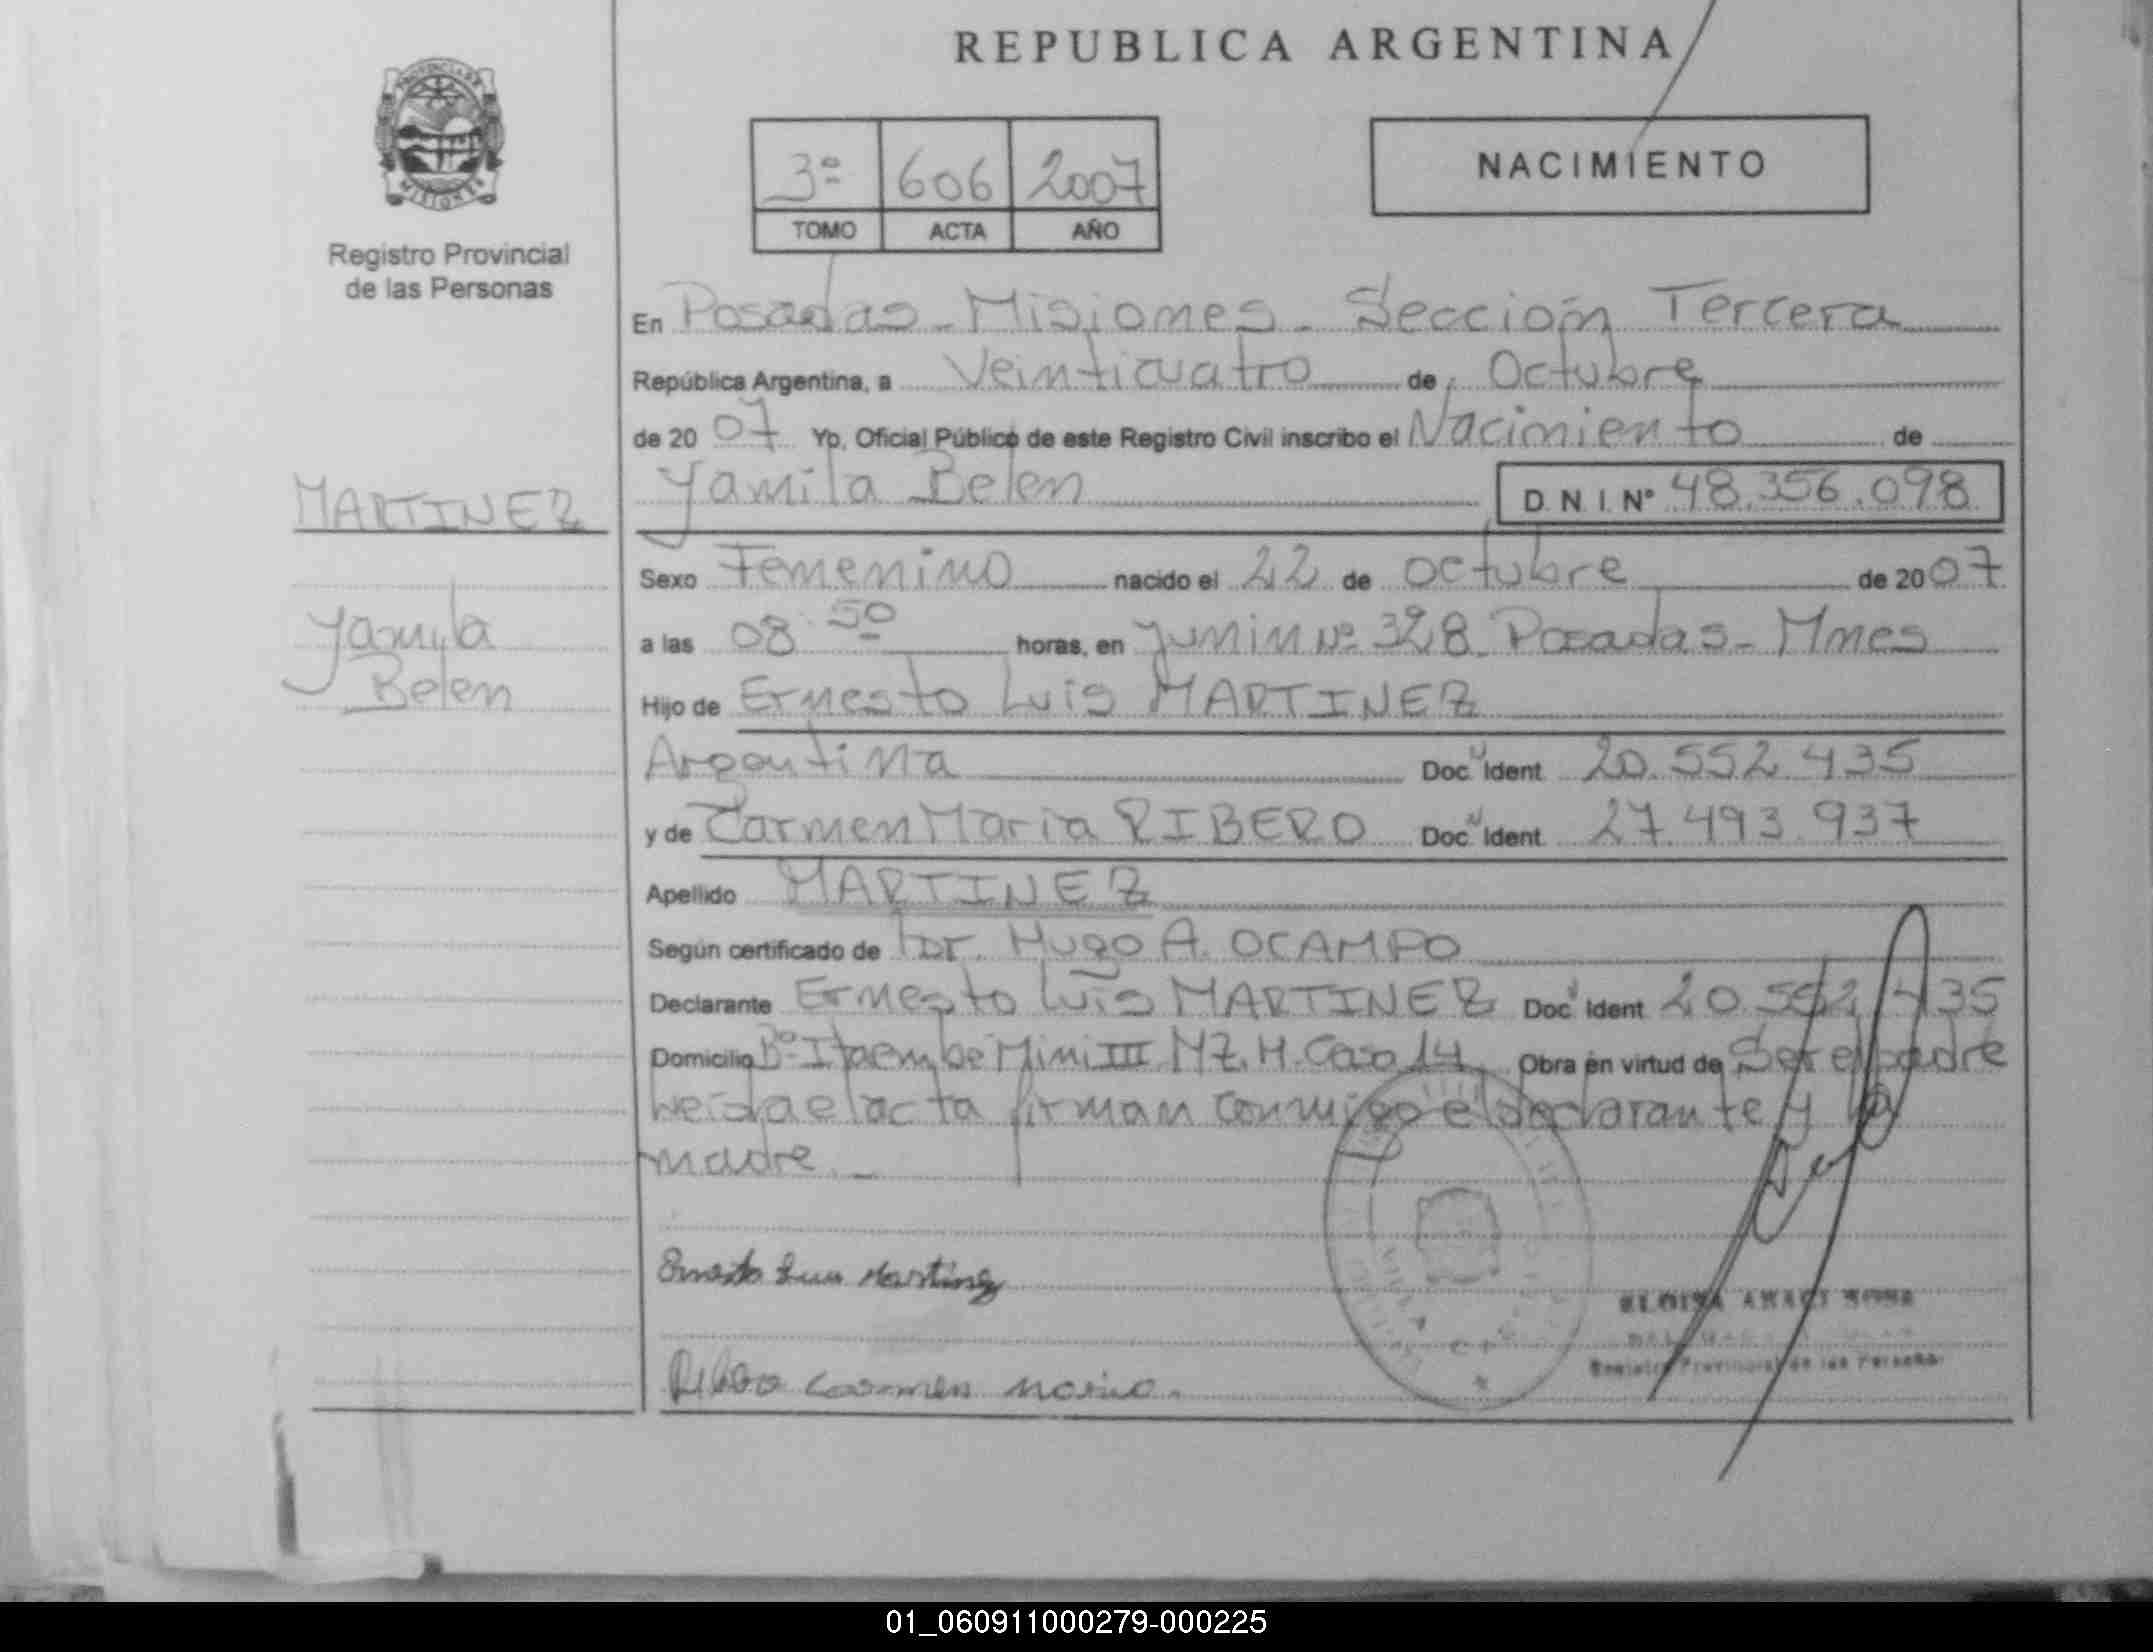 REPUBLICA ARGENTINA
PROVINCIA DE
MISIONES
Registro Provincial
de las Personas
3º 606 2007
TOMO ACTA AÑO
NACIMIENTO
En Posadas - Misiones - Sección Tercera
República Argentina, a Veinticuatro de Octubre
de 20 07 Yo, Oficial Público de este Registro Civil inscribo el Nacimiento de
MARTINEZ
Yamila Belen D. N. I. Nº 48.356.098
Sexo Femenino nacido el 22 de octubre de 20 07
Yamila
Belen
a las 08:50 horas, en Junin Nº 328 Posadas - Mnes
Hijo de Ernesto Luis MARTINEZ
Argentina Doc. Ident 20.552.435
y de Carmen Maria RIBERO Doc. Ident 27.493.937
Apellido MARTINEZ
Según certificado de Dr. Hugo A. OCAMPO
Declarante Ernesto Luis MARTINEZ Doc. Ident 20.552.435
Domicilio Bº Itaembe Mini III MZ. H. Casa 14 Obra en virtud de Ser el padre
Leida el acta firman conmigo el declarante y la
madre. -
Ernesto Luis Martinez
Registro Provincial de las Personas
Ribero Carmen Maria.
01_060911000279-000225